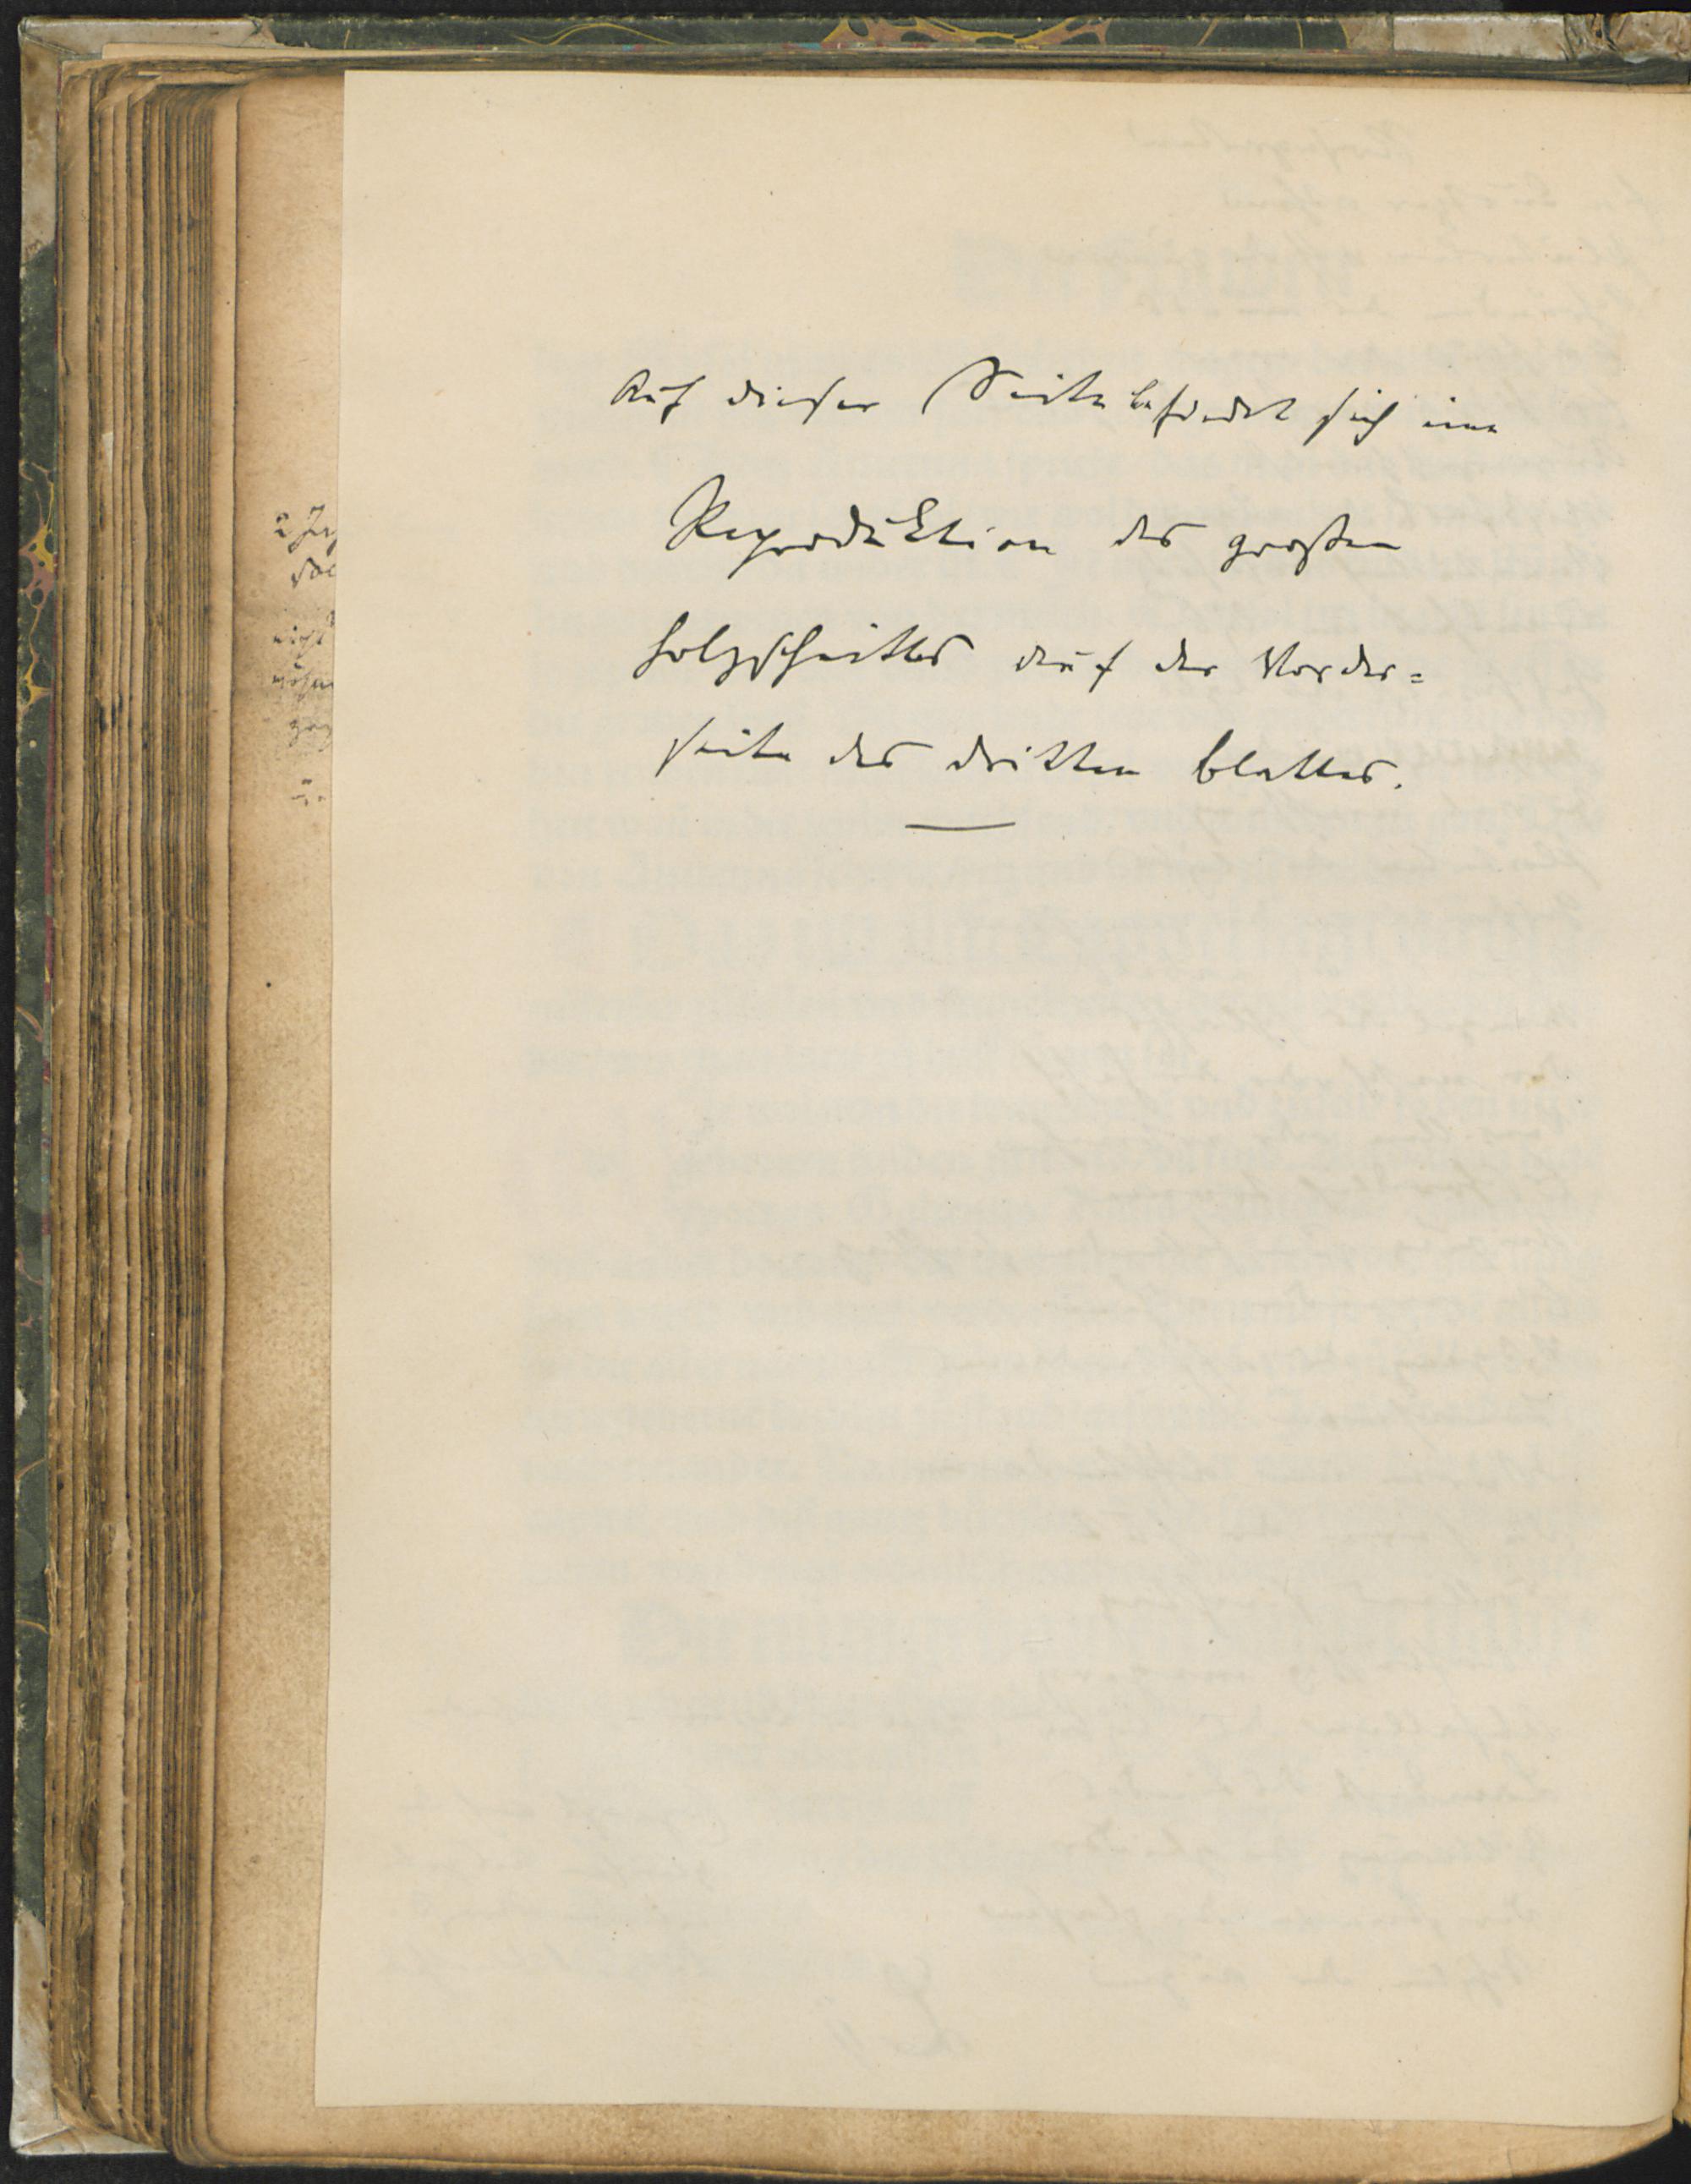 Auf dieser Seite befindet sich eine
Reproduktion des großen
Holzschnittes auf der Vorder=
seite des dritten Blattes.
2
nicht